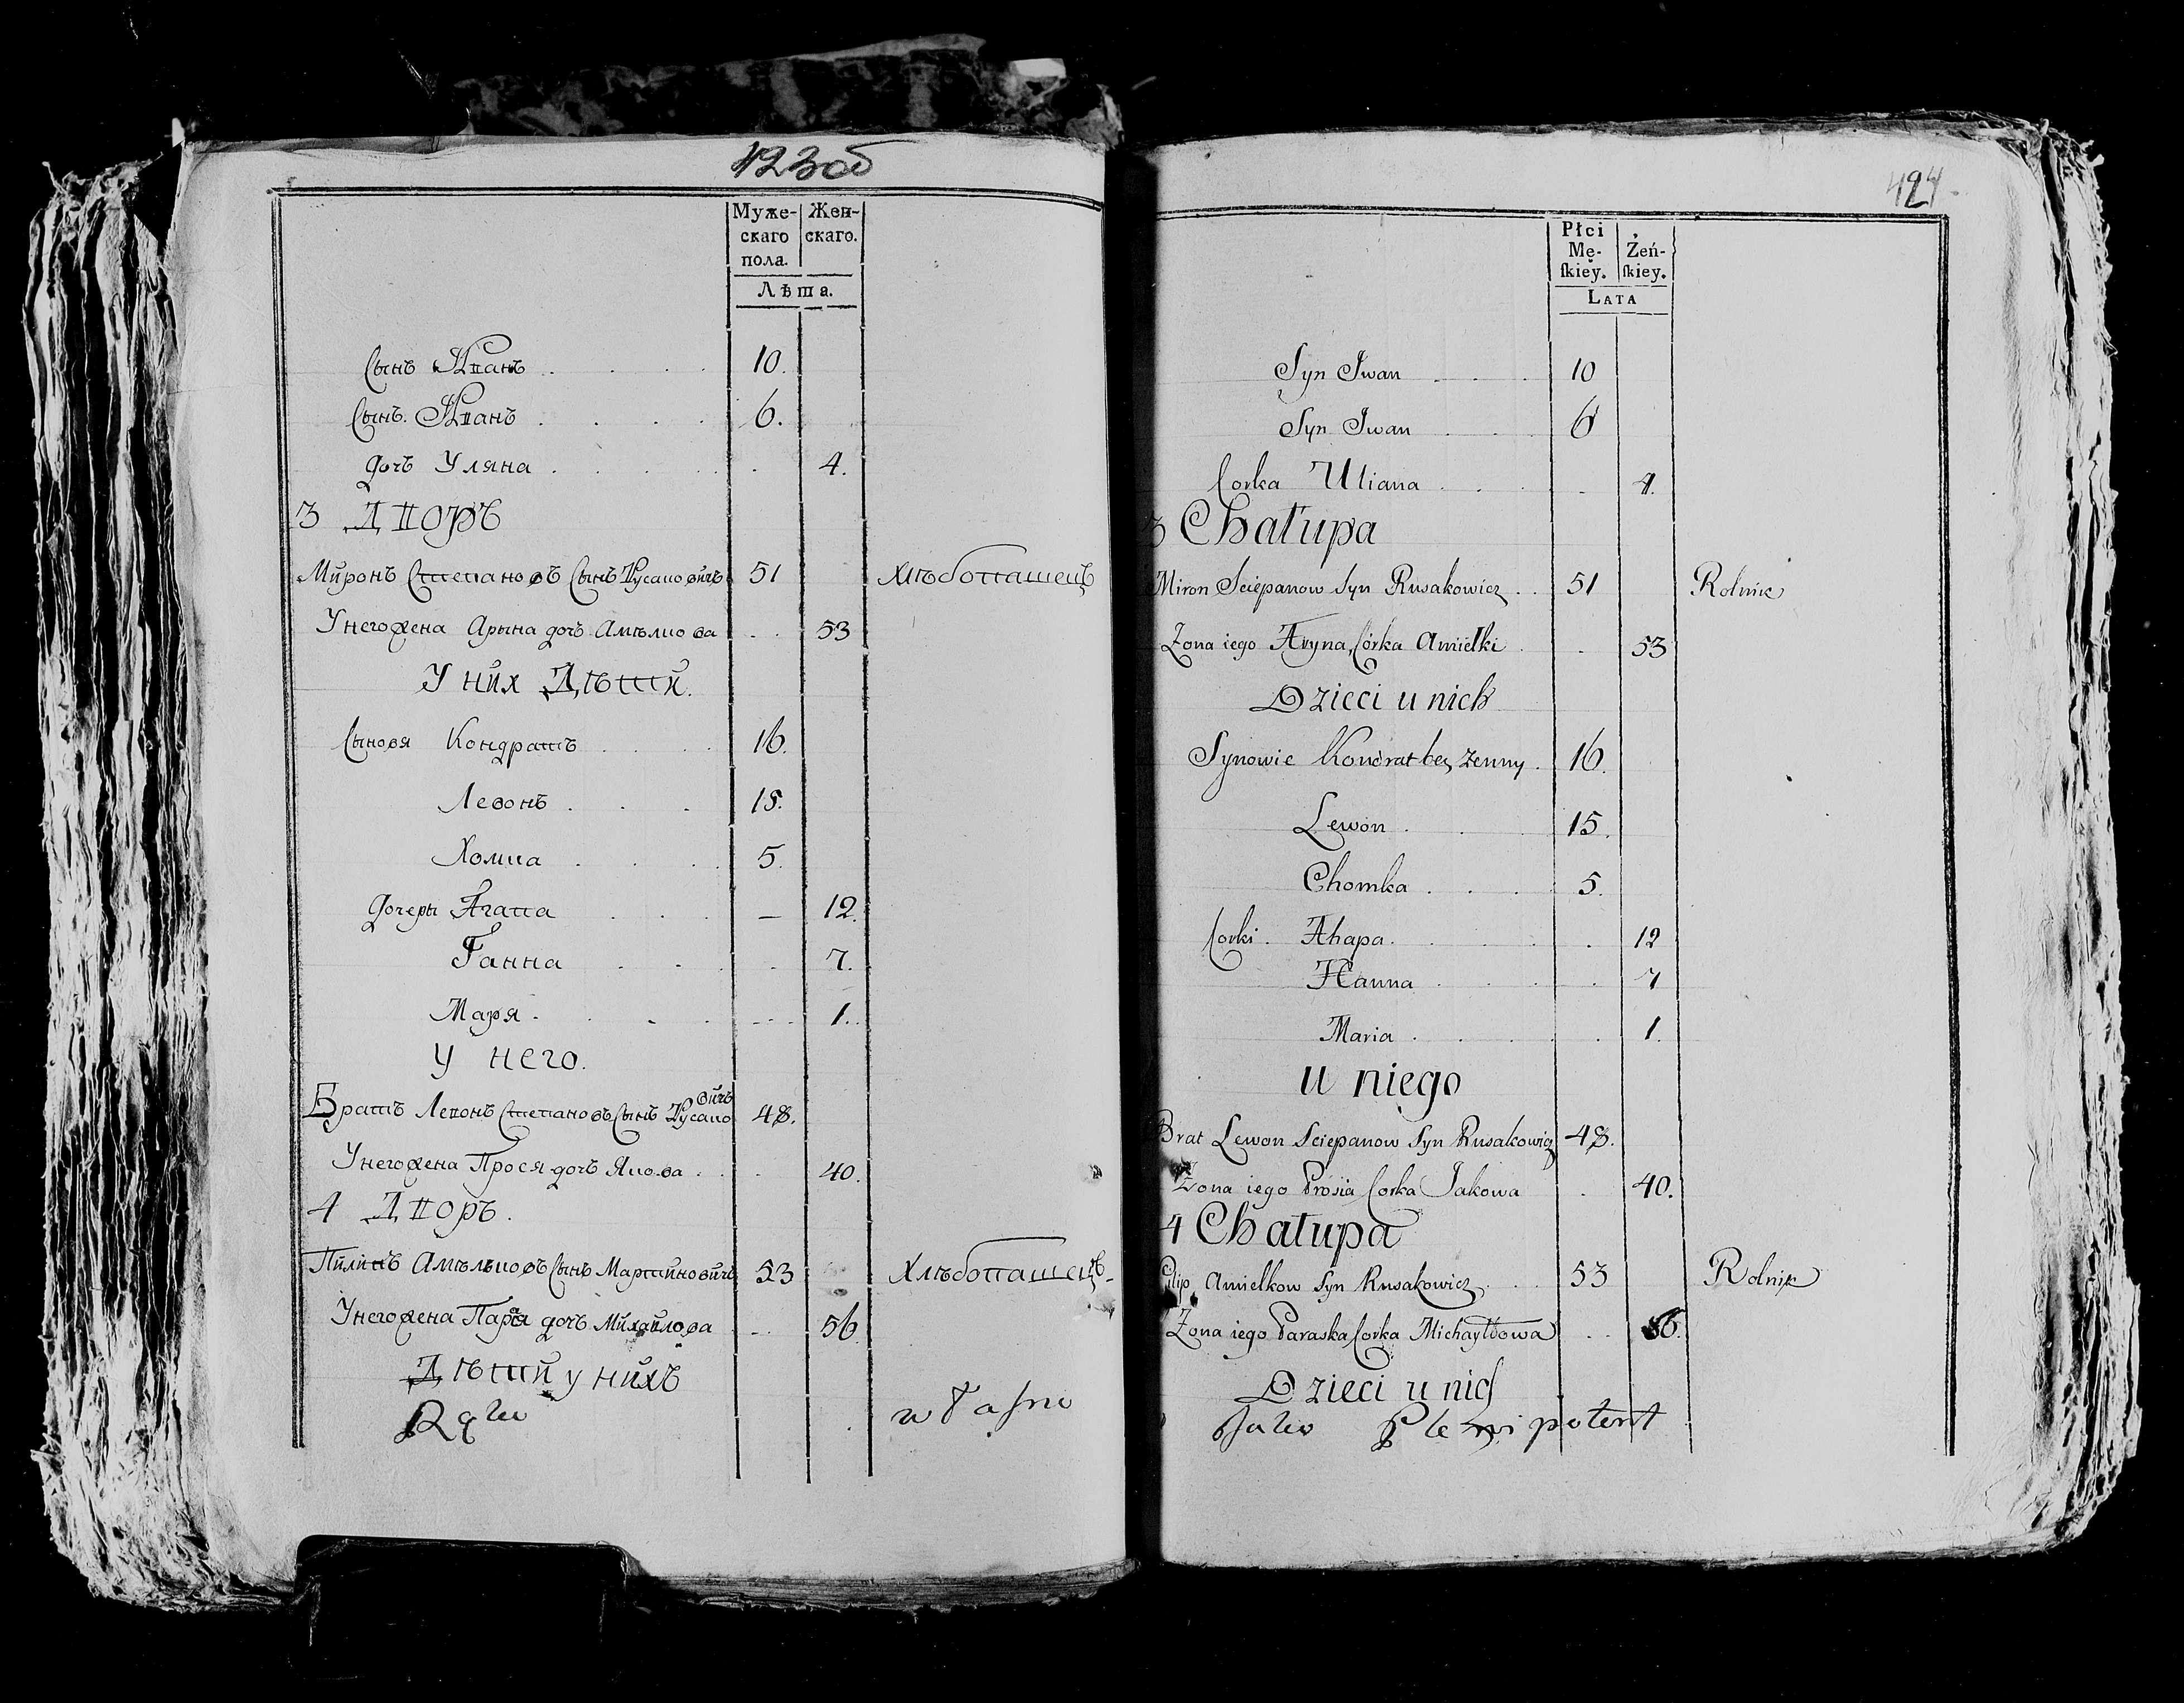 423об
Муже-
скаго
пола.
Жен-
скаго.
Лѣта.
Сынъ Иванъ . . . . 10.
Сынъ. Иванъ . . . . 6.
дочъ Уляна . . . . . 4.
3 Дворъ
Миронъ Степановъ Сынъ Русаковичъ 51 Хлѣбопашецъ
У него жена Арына дочъ Амѣлкова . . 53
У них Дѣти.
Сыновя Кондратъ . . . 16.
Левонъ . . . 15.
Хомка . . . 5.
дочеры Агапа . . . — 12.
Ганна . . . . 7.
Маря . . . . 1.
У него.
Братъ Левонъ Степановъ Сынъ Русаковичъ 48.
У него жена Прося дочъ Якова . . 40.
4 Дворъ.
Пилипъ Амѣльковъ Сынъ Мартиновичъ 53 Хлѣбопашецъ
У него жена Параска дочъ Михайлова . . 56.
Дѣти у нихъ
własno
424
Płci
Mę-
ſkiey.
Żeń-
ſkiey.
Lata
Syn Iwan . . . 10
Syn Iwan . . . 6
Corka Uliana . . . . 4.
3 Chałupa
Miron Sciepanow Syn Rusakowicz . . 51 Rolnik
Zona iego Aryna, Córka Amiełki . . 53
Dzieci u nich
Synowie Kondrat bez zenny . 16.
Lewon . . . 15.
Chomka . . . 5.
Corki. Ahapa. . . . . 12
Hanna . . . . 7
Maria . . . . 1.
u niego
Brat Lewon Sciepanow Syn Rusakowicz 48.
Zona iego Prosia Corka Jakowa . 40.
4 Chałupa
Filip Amielkow Syn Rusakowicz . . 53 Rolnik
Zona iego Paraska Corka Michayłowa . . 56.
Dzieci u nich
Jako Plenipotent